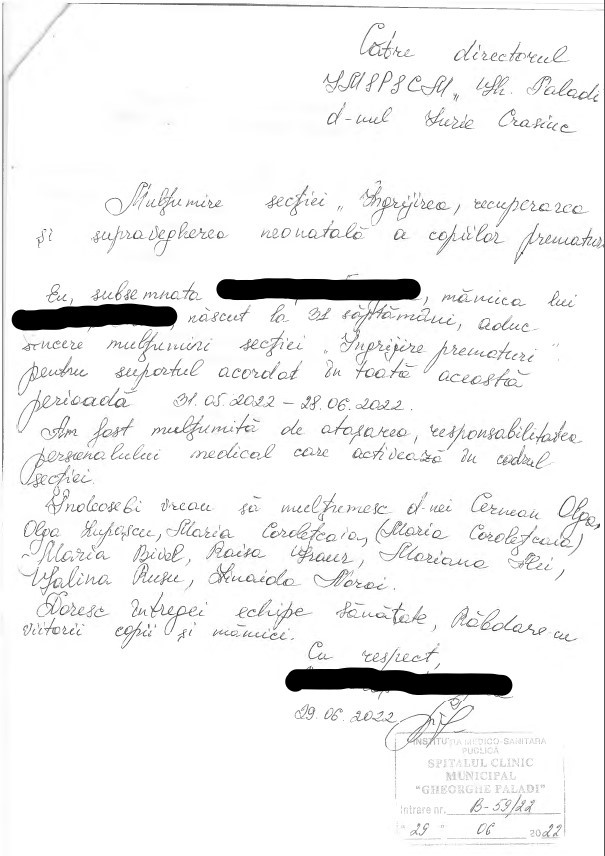 Către directorul
IMSPSCM „Gh. Paladi
d-nul Iurie Crasiuc
Mulțumire secției „Îngrijirea, recuperarea
și supravegherea neonatală a copiilor prematuri
Eu, subsemnata , mămica lui
, născut la 31 săptămâni, aduc
sincere mulțumiri secției „Îngrijire prematuri”
pentru suportul acordat în toată această
perioadă 31.05.2022 – 28.06.2022.
Am fost mulțumită de atașarea, responsabilitatea
personalului medical care activează în cadrul
secției.
Îndeosebi vreau să mulțumesc d-nei Cerman Olga,
Olga Lupașcu, Maria Corolețcaia, (Maria Corolețcaia)
Maria Bivol, Raisa, Mariana,
Galina Rusu, Zinaida Moroi.
Doresc întregei echipe sănătate, Răbdare cu
viitorii copii și mămici.
Cu respect,
29.06.2022
INSTITUȚIA MEDICO-SANITARĂ
PUBLICĂ
SPITALUL CLINIC
MUNICIPAL
"GHEORGHE PALADI"
Intrare nr. B-59/22
"29" 06 2022